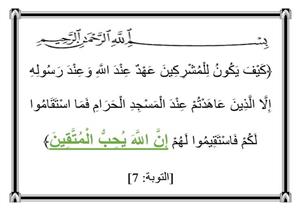 بسم الله الرحمن الرحيم
﴿كَيْفَ يَكُونُ لِلْمُشْرِكِينَ عَهْدٌ عِنْدَ اللَّهِ وَعِنْدَ رَسُولِهِ
إِلَّا الَّذِينَ عَاهَدْتُمْ عِنْدَ الْمَسْجِدِ الْحَرَامِ فَمَا اسْتَقَامُوا
لَكُمْ فَاسْتَقِيمُوا لَهُمْ إِنَّ اللَّهَ يُحِبُّ الْمُتَّقِينَ﴾
[التوبة: 7]